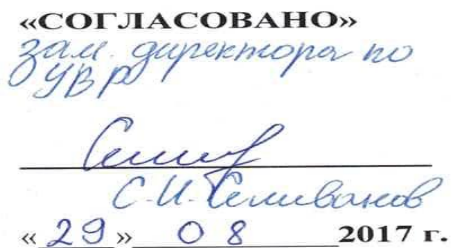 «СОГЛАСОВАНО»
зам. директора по
УВР
С.И. Селиванов
« 29 » 08 2017 г.